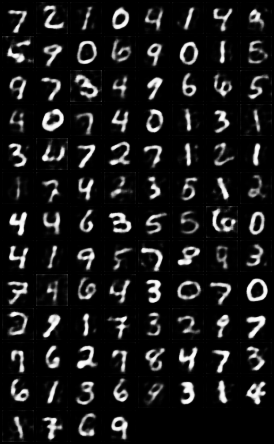 7 2 1 0 4 1 4 9
5 9 0 6 9 0 1 5
9 7 3 4 9 6 6 5
4 0 7 4 0 1 3 1
3 4 7 2 7 1 2 1
1 7 4 2 3 5 1 2
4 4 6 3 5 5 6 0
4 1 9 5 7 8 9 3
7 4 6 4 3 0 7 0
2 9 1 7 3 2 9 7
7 6 2 7 8 4 7 3
6 1 3 6 9 3 1 4
1 7 6 9